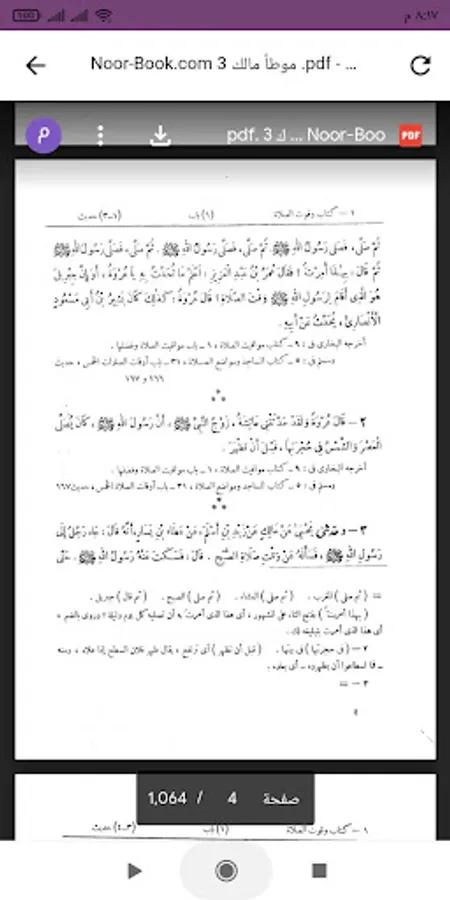 ٨:١٧ م
100
Noor-Book.com موطأ مالك 3 .pdf - ...
م
pdf. 3 ك ... Noor-Boo
PDF
١ – كتاب وقوت الصلاة (١) باب (١–٣) حديث
ثُمَّ صَلَّى، فَصَلَّى رَسُولُ اللهِ ﷺ. ثُمَّ صَلَّى، فَصَلَّى رَسُولُ اللهِ ﷺ. ثُمَّ صَلَّى، فَصَلَّى رَسُولُ اللهِ ﷺ
ثُمَّ قَالَ : بِهٰذَا أُمِرْتُ ؛ فَقَالَ عُمَرُ بْنُ عَبْدِ الْعَزِيزِ : اعْلَمْ مَا تُحَدِّثُ بِهِ يَا عُرْوَةُ ، أَوَ إِنَّ جِبْرِيلَ
هُوَ الَّذِى أَقَامَ لِرَسُولِ اللهِ ﷺ وَقْتَ الصَّلَاةِ؟ قَالَ عُرْوَةُ : كَذٰلِكَ كَانَ بَشِيرُ بْنُ أَبِى مَسْعُودٍ
الْأَنْصَارِىُّ ، يُحَدِّثُ عَنْ أَبِيهِ .
أخرجه البخارى فى : ٩ – كتاب مواقيت الصلاة ، ١ – باب مواقيت الصلاة وفضلها .
ومسلم فى : ٥ – كتاب المساجد ومواضع الصلاة ، ٣١ – باب أوقات الصلوات الخمس ، حديث
١٦٦ و ١٦٧
٢ – قَالَ عُرْوَةُ وَلَقَدْ حَدَّثَتْنِى عَائِشَةُ، زَوْجُ النَّبِىِّ ﷺ ؛ أَنَّ رَسُولَ اللهِ ﷺ ، كَانَ يُصَلِّى
الْعَصْرَ وَالشَّمْسُ فِى حُجْرَتِهَا ، قَبْلَ أَنْ تَظْهَرَ .
أخرجه البخارى فى : ٩ – كتاب مواقيت الصلاة ، ١ – باب مواقيت الصلاة وفضلها .
ومسلم فى : ٥ – كتاب المساجد ومواضع الصلاة ، ٣١ – باب أوقات الصلوات الخمس ، حديث ١٦٧
٣ – وحدثنى يَحْيَى عَنْ مَالِكٍ عَنْ زَيْدِ بْنِ أَسْلَمَ، عَنْ عَطَاءِ بْنِ يَسَارٍ، أَنَّهُ قَالَ : جَاءَ رَجُلٌ إِلَى
رَسُولِ اللهِ ﷺ ، فَسَأَلَهُ عَنْ وَقْتِ صَلَاةِ الصُّبْحِ . قَالَ : فَسَكَتَ عَنْهُ رَسُولُ اللهِ ﷺ . حَتَّى
== (ثم صلى) المغرب . (ثم صلى) العشاء . (ثم صلى) الصبح . (ثم قال) جبريل .
(بهذا أمرت) بفتح التاء، على المشهور ، أى هذا الذى أمرت به أن تصليه كل يوم وليلة ؛ وروى بالضم ،
أى هذا الذى أمرت بتبليغه لك .
٢ – (فى حجرتها) فى بيتها . (قبل أن تظهر) أى ترتفع ، يقال ظهر فلان السطح إذا علاه ، ومنه
– فما اسطاعوا أن يظهروه – أى يعلوه .
٣ – ==
٤
صفحة 4 / 1,064
١ – كتاب وقوت الصلاة (١) باب (٣–٤) حديث